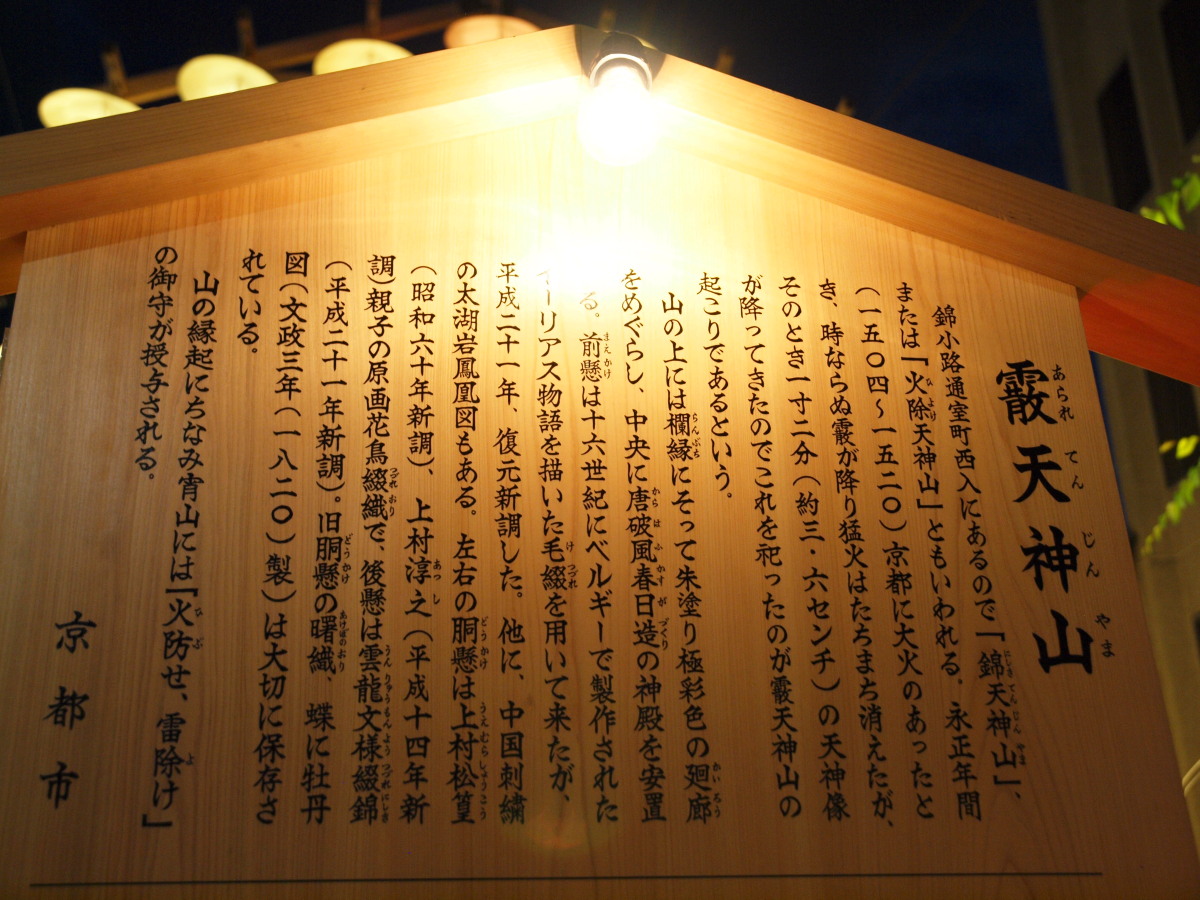 霰天神山
錦小路通室町西入にあるので「錦天神山」、
または「火除天神山」ともいわれる。永正年間
（一五〇四～一五二〇）京都に大火のあったと
き、時ならぬ霰が降り猛火はたちまち消えたが、
そのとき一寸二分（約三・六センチ）の天神像
が降ってきたのでこれを祀ったのが霰天神山の
起こりであるという。
山の上には欄縁にそって朱塗り極彩色の廻廊
をめぐらし、中央に唐破風春日造の神殿を安置
る。前懸は十六世紀にベルギーで製作された
ーリアス物語を描いた毛綴を用いて来たが、
平成二十一年、復元新調した。他に、中国刺繍
の太湖岩鳳凰図もある。左右の胴懸は上村松篁
（昭和六十年新調）、上村淳之（平成十四年新
調）親子の原画花鳥綴織で、後懸は雲龍文様綴錦
（平成二十一年新調）。旧胴懸の曙織、蝶に牡丹
図（文政三年（一八二〇）製）は大切に保存さ
れている。
山の縁起にちなみ宵山には「火防せ、雷除け」
の御守が授与される。
京都市